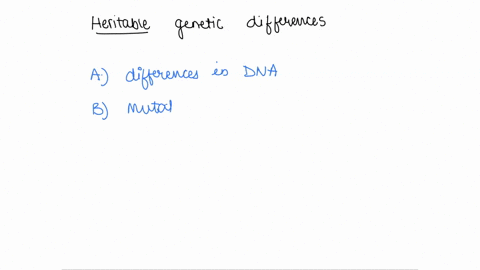 Heritable genetic differences
A.) differences in DNA
B) Mutat